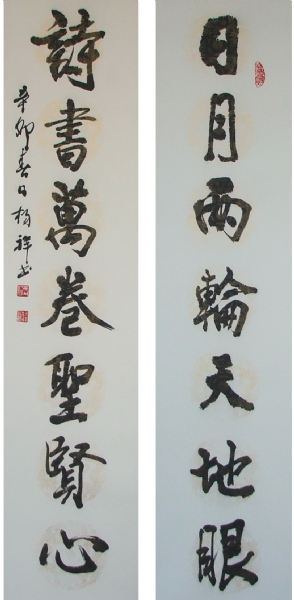 日月兩輪天地眼
詩書萬卷聖賢心
辛卯春日楊祥书